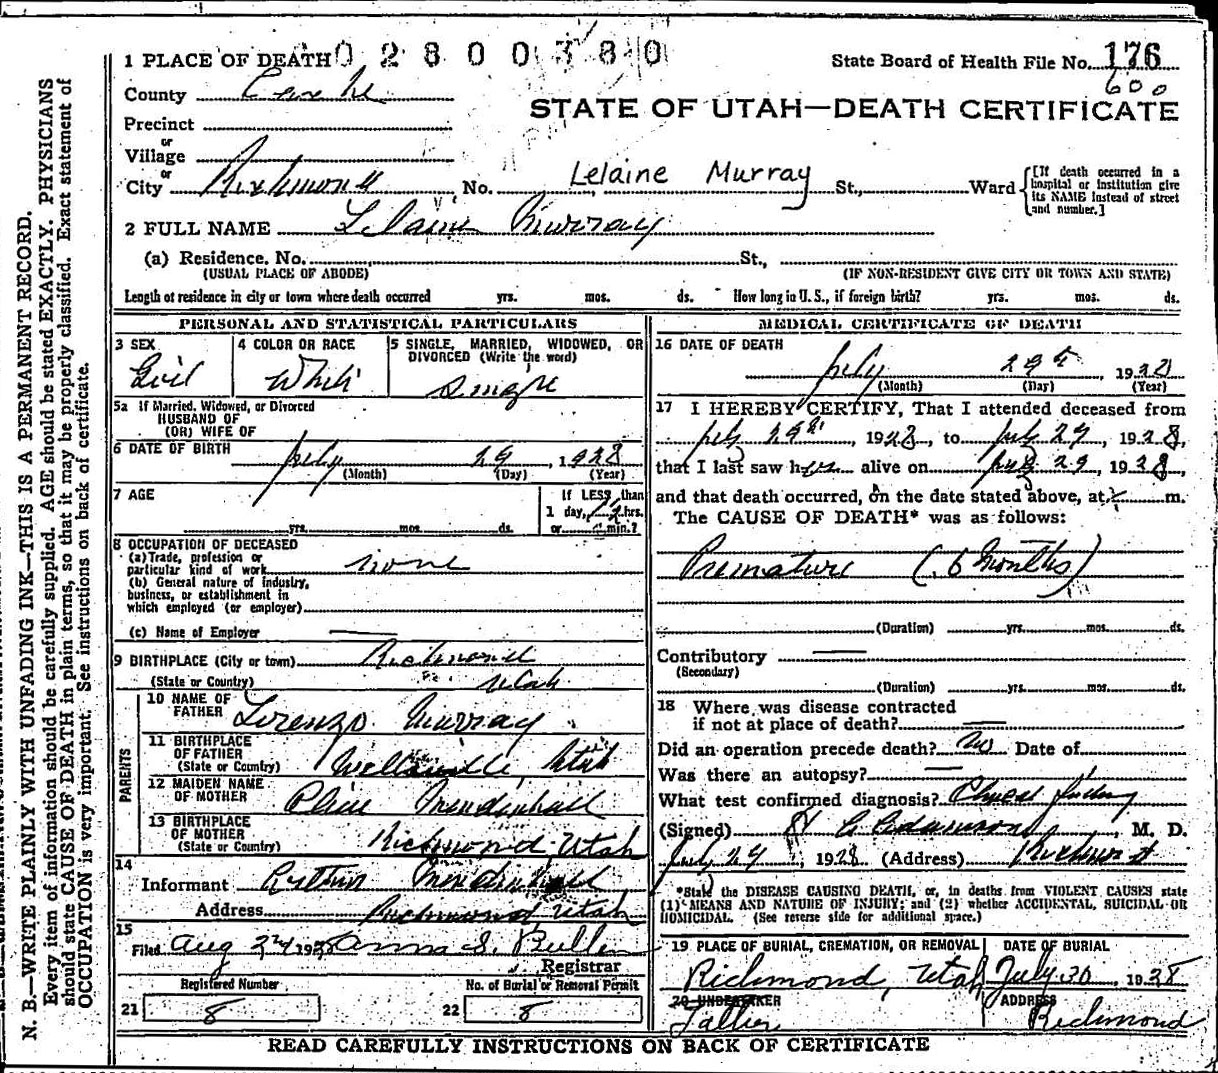 1 PLACE OF DEATH 0 2 8 0 0 3 8 0 State Board of Health File No. 176
600
County Cache
STATE OF UTAH—DEATH CERTIFICATE
Precinct
or
Village
or
City Richmond No. Lelaine Murray St., Ward [If death occurred in a hospital or institution give its NAME instead of street and number.]
2 FULL NAME Lelaine Murray
(a) Residence. No. St.,
(USUAL PLACE OF ABODE) (IF NON-RESIDENT GIVE CITY OR TOWN AND STATE)
Length of residence in city or town where death occurred yrs. mos. ds. How long in U. S., if foreign birth? yrs. mos. ds.
PERSONAL AND STATISTICAL PARTICULARS
3 SEX 4 COLOR OR RACE 5 SINGLE, MARRIED, WIDOWED, OR
DIVORCED (Write the word)
Girl White Single
5a If Married, Widowed, or Divorced
HUSBAND OF
(OR) WIFE OF
6 DATE OF BIRTH July 29, 1928
(Month) (Day) (Year)
7 AGE yrs. mos. ds.
If LESS than
1 day, hrs.
or min.?
8 OCCUPATION OF DECEASED
(a) Trade, profession or
particular kind of work none
(b) General nature of industry,
business, or establishment in
which employed (or employer)
(c) Name of Employer
9 BIRTHPLACE (City or town) Richmond
(State or Country) Utah
PARENTS
10 NAME OF
FATHER Lorenzo Murray
11 BIRTHPLACE
OF FATHER
(State or Country) Wellsville, Utah
12 MAIDEN NAME
OF MOTHER Mendenhall
13 BIRTHPLACE
OF MOTHER
(State or Country) Richmond Utah
14
Informant Mendenhall
Address Richmond Utah
15
Filed Aug 24 1928 Anna S. Bullen
Registrar
Registered Number No. of Burial or Removal Permit
21 8 22 8
MEDICAL CERTIFICATE OF DEATH
16 DATE OF DEATH
July 29th, 1928
(Month) (Day) (Year)
17 I HEREBY CERTIFY, That I attended deceased from
July 29th, 1928, to July 29, 1928,
that I last saw her alive on July 29, 1928,
and that death occurred, on the date stated above, at m.
The CAUSE OF DEATH* was as follows:
Premature (6 months)
(Duration) yrs. mos. ds.
Contributory
(Secondary)
(Duration) yrs. mos. ds.
18 Where was disease contracted
if not at place of death?
Did an operation precede death? No Date of
Was there an autopsy?
What test confirmed diagnosis?
(Signed) Adamson, M. D.
July 29, 1928 (Address) Richmond
*State the DISEASE CAUSING DEATH, or, in deaths from VIOLENT CAUSES state
(1) MEANS AND NATURE OF INJURY; and (2) whether ACCIDENTAL, SUICIDAL OR
HOMICIDAL. (See reverse side for additional space.)
19 PLACE OF BURIAL, CREMATION, OR REMOVAL DATE OF BURIAL
Richmond, Utah July 30 1928
20 UNDERTAKER ADDRESS
Father Richmond
READ CAREFULLY INSTRUCTIONS ON BACK OF CERTIFICATE
N. B.—WRITE PLAINLY WITH UNFADING INK—THIS IS A PERMANENT RECORD.
Every item of information should be carefully supplied. AGE should be stated EXACTLY. PHYSICIANS
should state CAUSE OF DEATH in plain terms, so that it may be properly classified. Exact statement of
OCCUPATION is very important. See instructions on back of certificate.